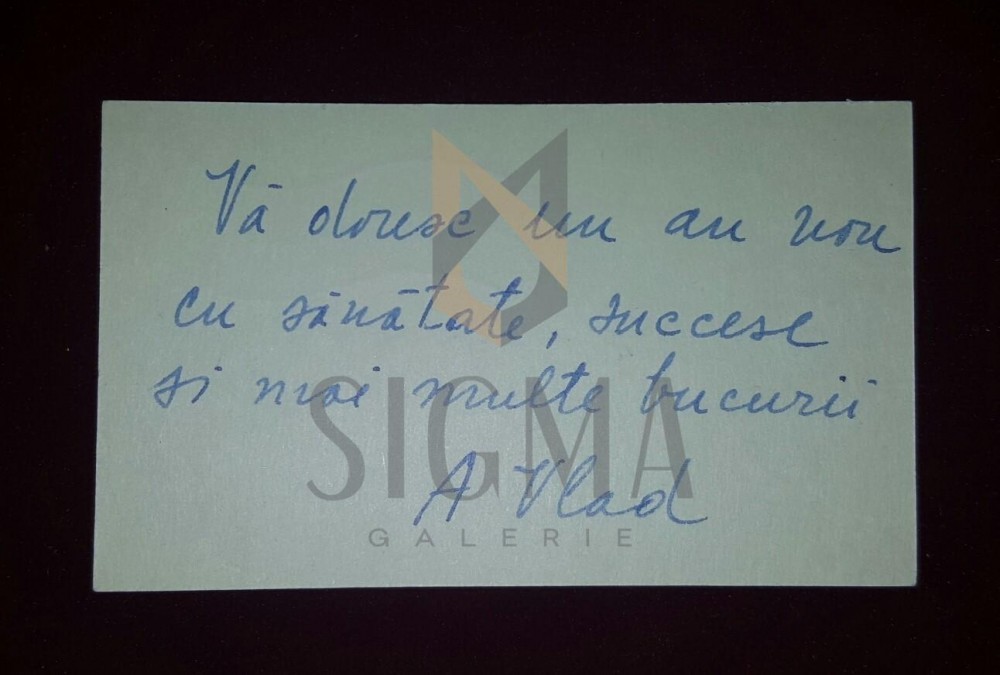 Vă doresc un an nou
cu sănătate, succese
si mai multe bucurii
A Vlad
SIGMA
GALERIE